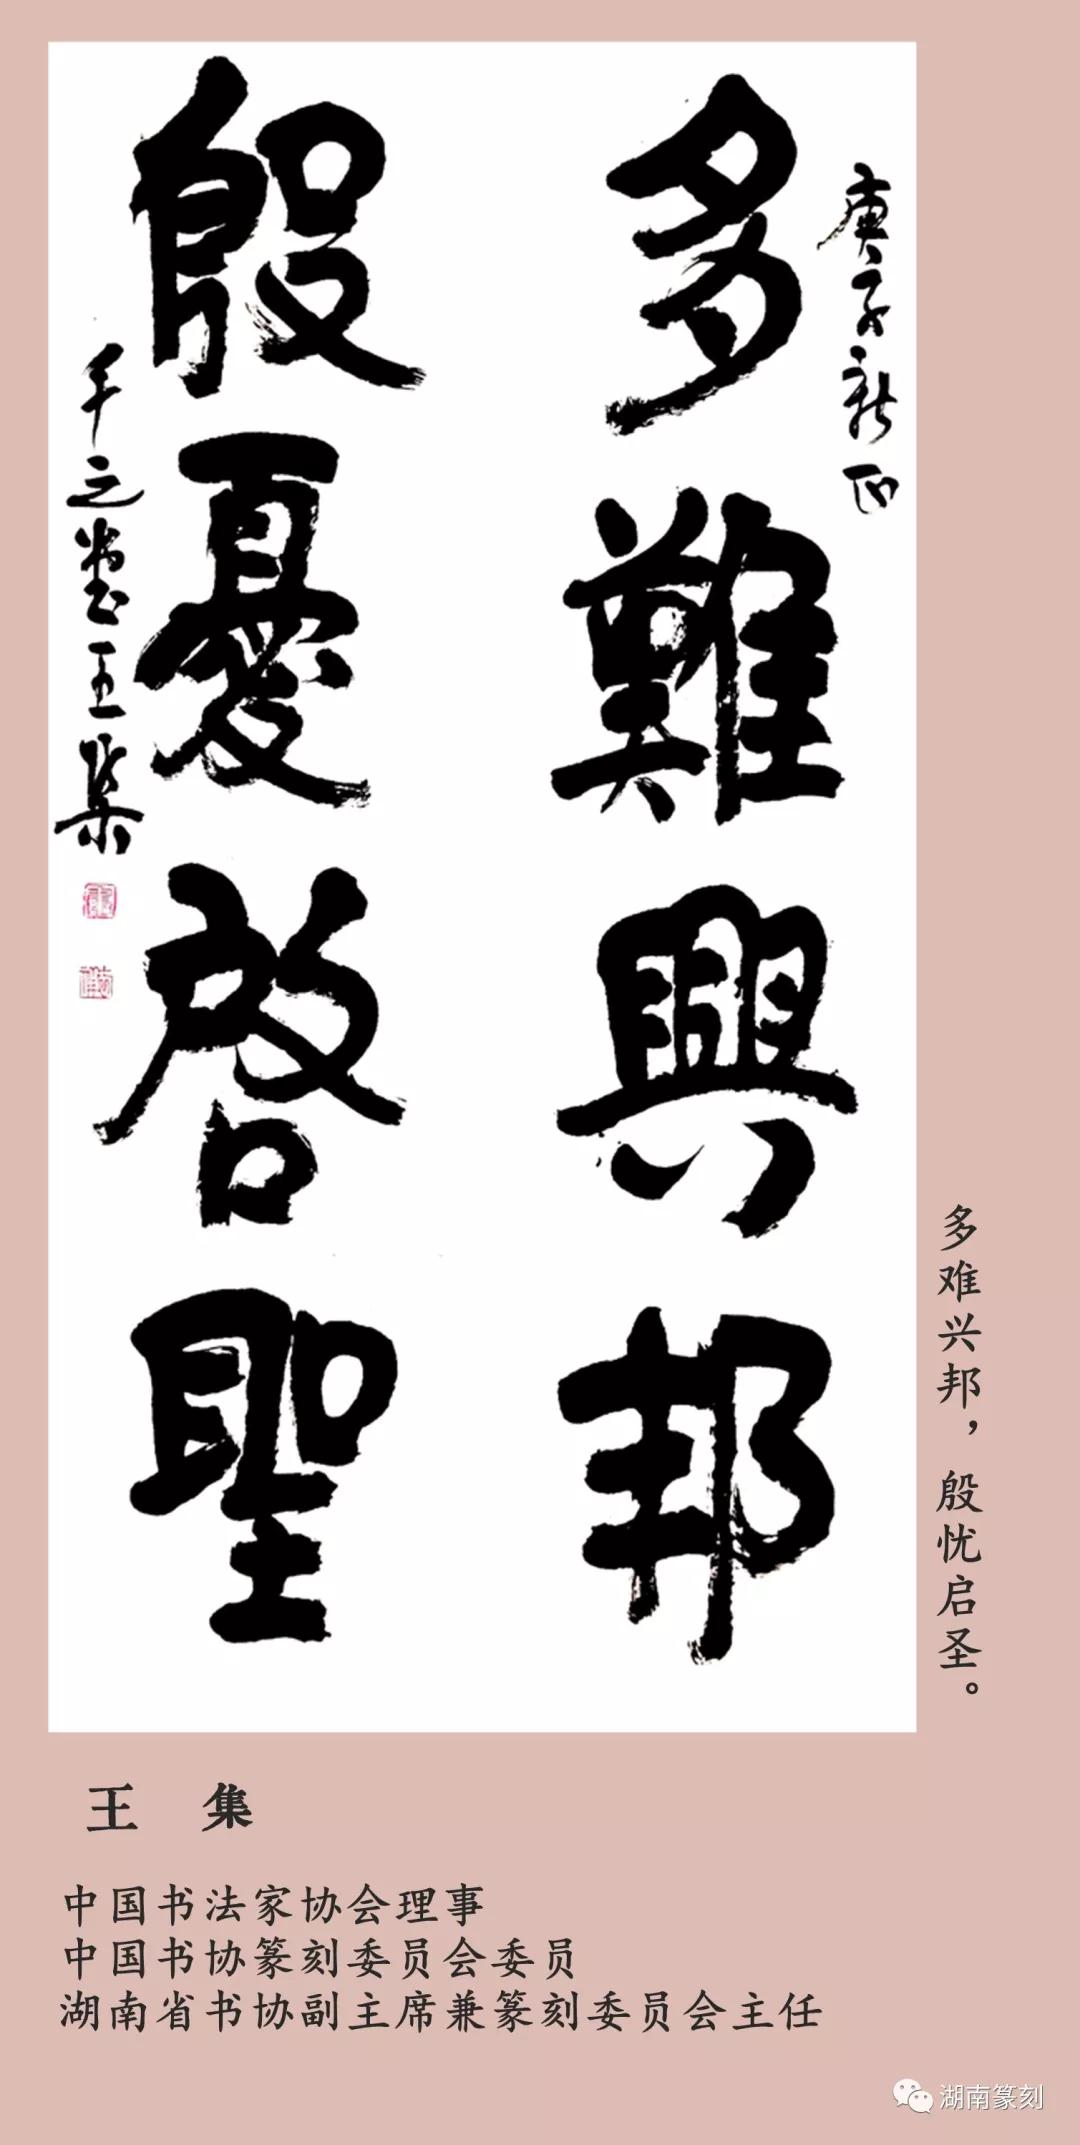 庚子新正
多難興邦
殷憂啓聖
王集
多难兴邦，殷忧启圣。
王 集
中国书法家协会理事
中国书协篆刻委员会委员
湖南省书协副主席兼篆刻委员会主任
湖南篆刻